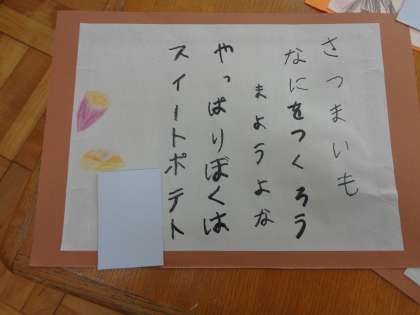 さつまいも
なにをつくろう
まようよな
やっぱりぼくは
スイートポテト